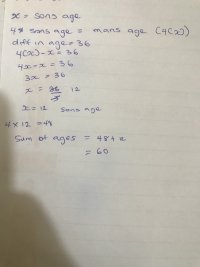 x = sons age
4x sons age = mans age (4(x))
diff in age = 36
4(x) - x = 36
4x - x = 36
3x = 36
x = 36/3 12
x = 12 sons age
4 x 12 = 48
Sum of ages = 48 + 12
= 60